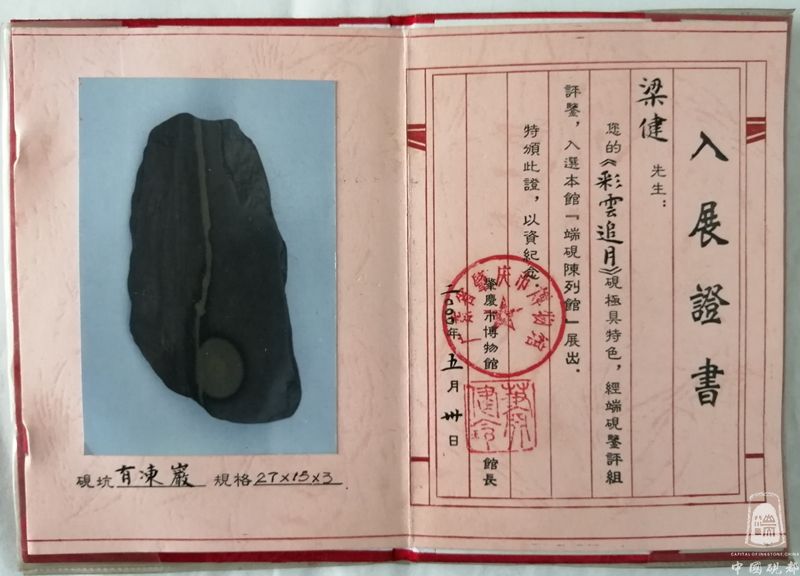 入展證書
梁健 先生：
您的《彩雲追月》硯極具特色，經端硯鑒評組
評鑒，入選本館「端硯陳列館」展出.
特頒此證，以資紀念.
肇慶市博物館 館長
五月卅日
肇庆市博物馆
硯坑 有凍巖 規格 27×15×3.
CAPITAL OF INKSTONE, CHINA
中國硯都